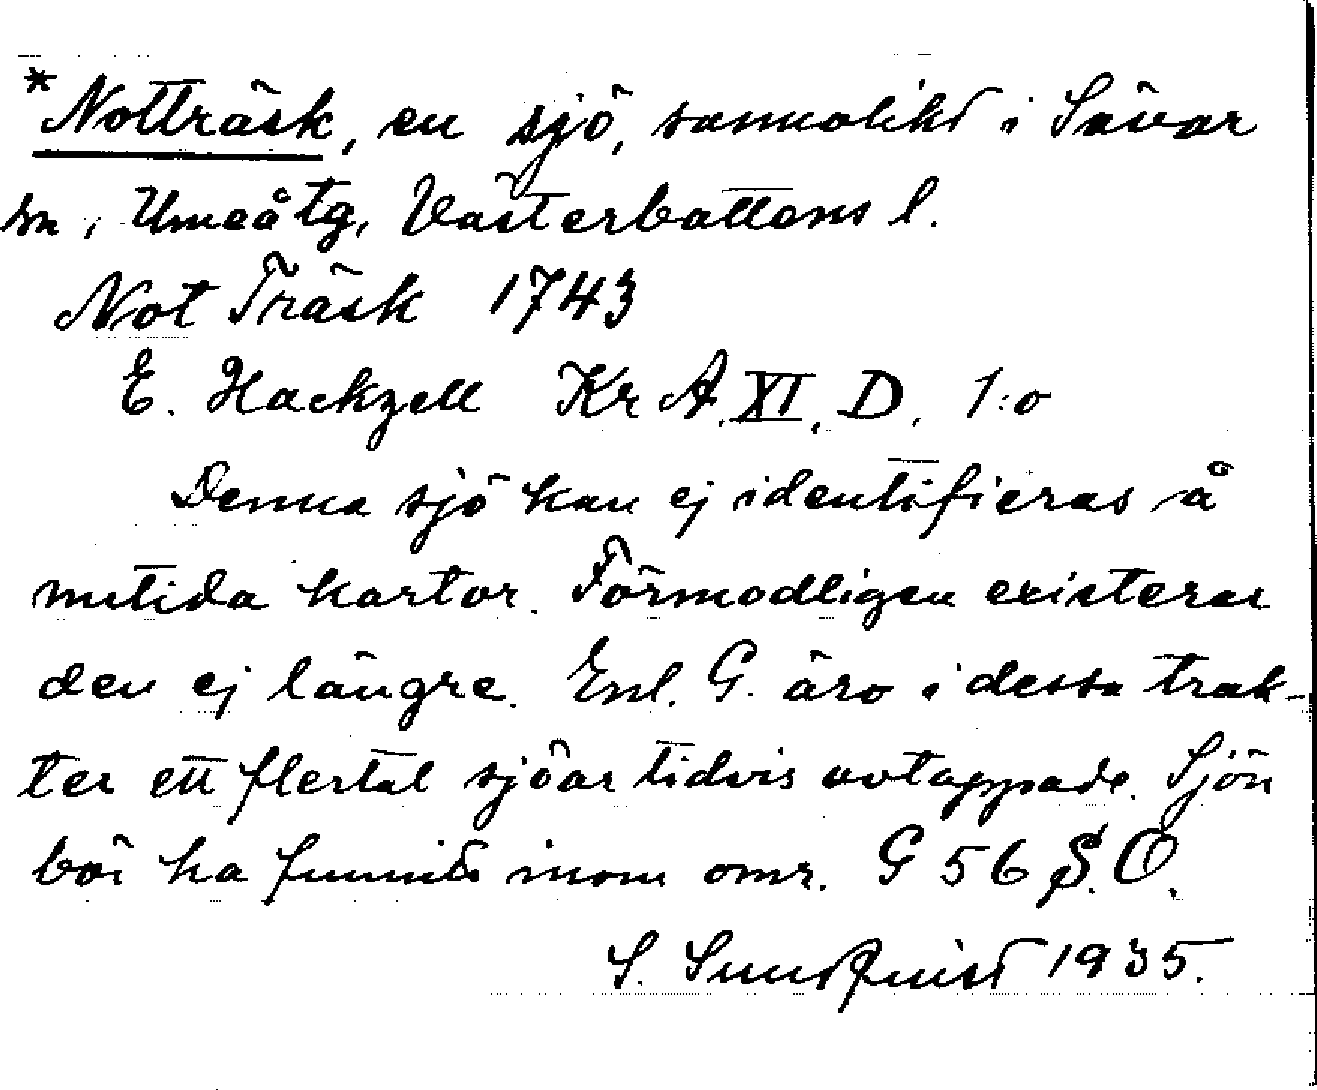 *Notträsk, en sjö, sannolikt i Sävar
sn, Umeå tg, Västerbottens l.
Not Träsk 1743
E. Hackzell KrA. XI. D. 1:o
Denna sjö kan ej identifieras å
nutida kartor. Förmodligen existerar
den ej längre. Enl. G. äro i dessa trak-
ter ett flertal sjöar tidvis avtappade. Sjön
bör ha funnits inom omr. G 56 S.O.
S. Sundquist 1935.